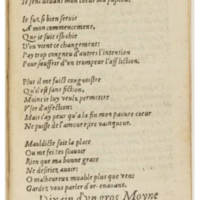 Ie sens dedans mon cœur ma
Ie fus si bien servie
A mon commencement,
Que ie suis esbahie
D'ou vient ce changement:
I'ay trop congneu d'autres l'intention
Pour souffrir d'un trompeur l'affliction.
Plus il me faict congnoistre
Qu'il est sans fiction,
Moins ie luy veulx permettre
D'affection
Mais i'ay peur qu'à la fin mon pauure cœur
Ne puisse de l'amour estre vainqueur.
Mauldicte soit la place
Ou me fei tes souuer
Rien que ma bonne grace
Ne desiriez auoir:
O malheureux meuble plus que vent
Gardez vous parler d'or-enauant.
Dixain d'vn gros Moyne